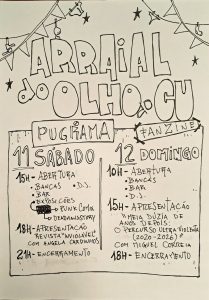 ARRAIAL
do OLHO.CU
PUGRAMA
FANZINE
11 SÁBADO
15H - ABERTURA
• BANCAS • D.J.
• BAR
• EXPOSIÇÕES
PUNK COMIX
DEADANDSTORY
18H - APRESENTAÇÃO
REVISTA "INVIOLÁVEL"
COM ANGELA CARDINHOS
21H - ENCERRAMENTO
12 DOMINGO
10H - ABERTURA
• BANCAS
• BAR
• D.J.
15H - APRESENTAÇÃO
"MEIA DÚZIA DE
ANOS DEPOIS
O PERCURSO ULTRA VIOLENTA
(2020-2026)"
COM MIGUEL CORREIA
18H - ENCERRAMENTO